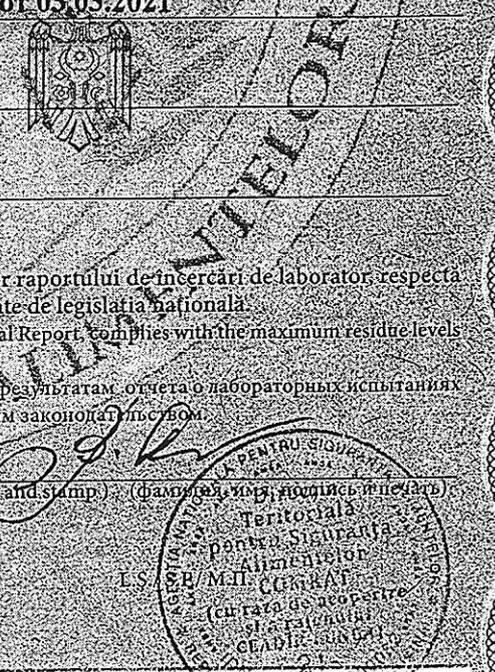 of 05.03.2021
r raportului de încercări de laborator, respectă
te de legislația națională.
al Report, complies with the maximum residue levels
результатам отчета о лабораторных испытаниях
м законодательством.
and stamp ) (фамилия, имя, подпись и печать)
L.S. / М.П.
PENTRU SIGURANȚA
Teritorială
pentru Siguranța
Alimentelor
COMRAT
(cu rata de acoperire
și a raionului